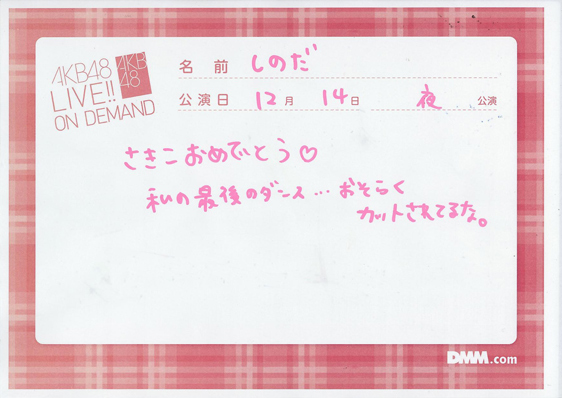 AKB48
LIVE!!
ON DEMAND
AKB
48
名前 しのだ
公演日 12月 14日 夜 公演
さきこおめでとう♡
私の最後のダンス…おそらく
カットされてるな。
DMM.com